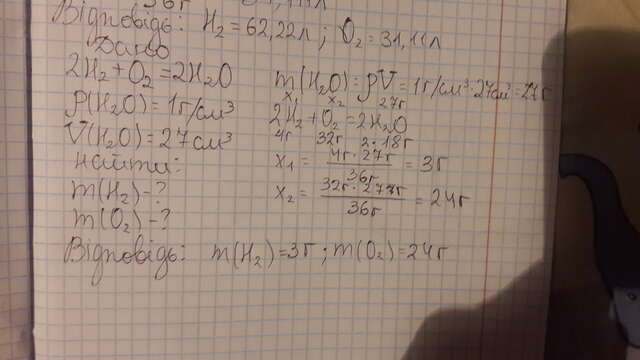 Відповідь: H₂ = 62,22л ; O₂ = 31,11л
Дано
2H₂ + O₂ = 2H₂O
ρ(H₂O) = 1г/см³
V(H₂O) = 27см³
Найти:
m(H₂) - ?
m(O₂) - ?
m(H₂O) = ρV = 1г/см³ · 27см³ = 27г
x₁ x₂ 27г
2H₂ + O₂ = 2H₂O
4г 32г 2·18г
x₁ = 4г · 27г / 36г = 3г
x₂ = 32г · 27г / 36г = 24г
Відповідь: m(H₂) = 3г ; m(O₂) = 24г